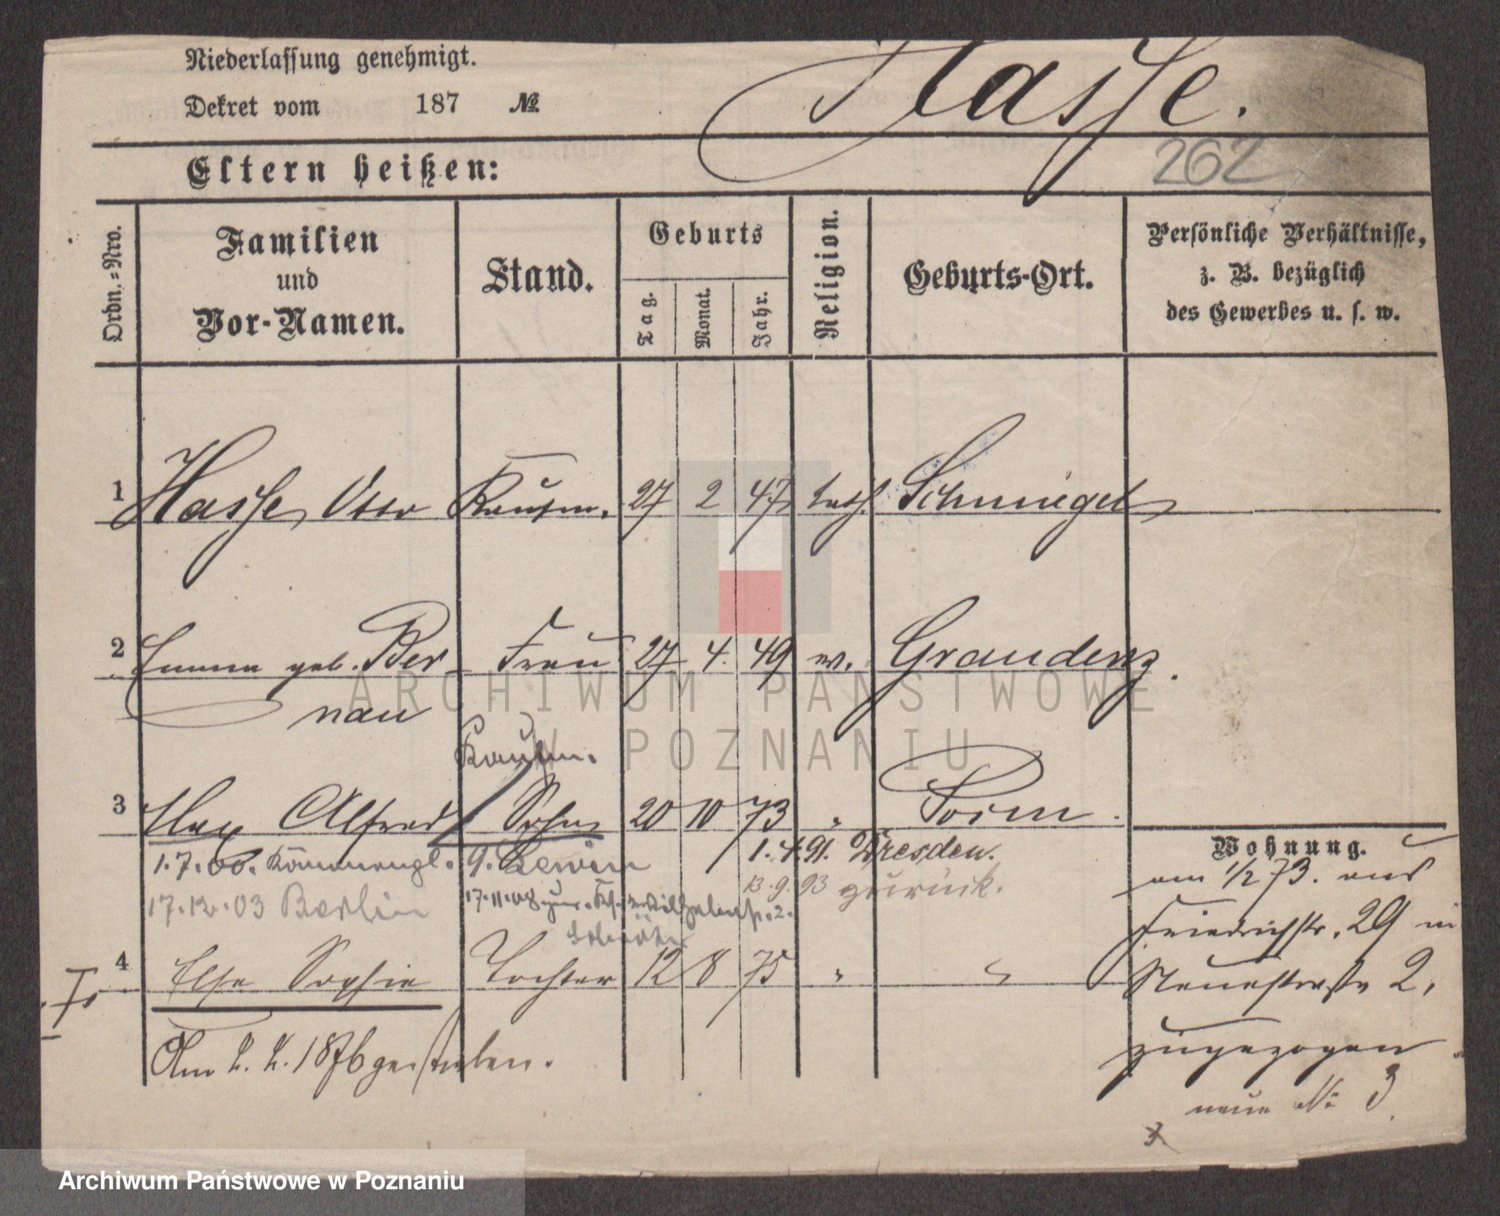 Niederlassung genehmigt.
Dekret vom 187 №
Hasse.
262
Eltern heißen:
Ordn.-Nro.
Familien und Vor-Namen.
Stand.
Geburts
Tag.
Monat.
Jahr.
Religion.
Geburts-Ort.
Persönliche Verhältnisse,
z. B. bezüglich
des Gewerbes u. s. w.
1 Hasse, Otto Kaufm. 27 2 47 kath. Schmiegel
2 Emma geb. Ber- Frau 27 4. 49 ev. Graudenz.
nau
Kaufm.
3 Max Alfred Sohn 20 10 73 " Posen.
1.7.00. 1.4.91. Dresden.
13.9.93 zurück.
17.12.03 Berlin 17.11.08
4 Else Sophie Tochter 12 8 75 " "
Am 2. 2. 1876 gestorben.
Wohnung.
am 1/2 73. aus
Friedrichstr. 29 in
Neuestraße 2,
zugezogen
neue № 3
ARCHIWUM PAŃSTWOWE
W POZNANIU
Archiwum Państwowe w Poznaniu